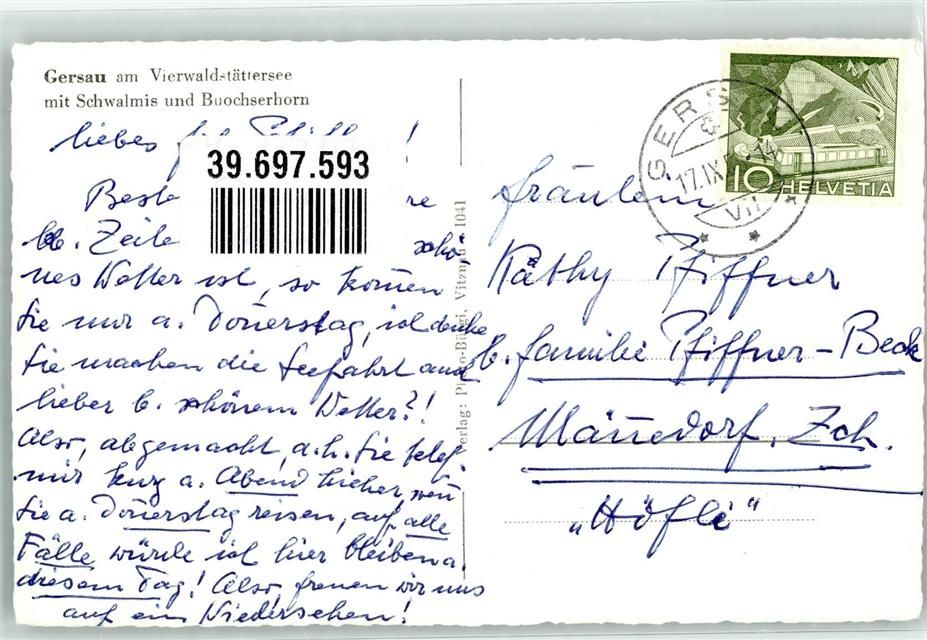 Gersau am Vierwaldstättersee
mit Schwalmis und Buochserhorn
liebes !
39.697.593
Beste re
lb. Zeile schö-
nes Wetter ist, so kom̄en
Sie nur a. Don̄erstag, ich denke
Sie machen die Seefahrt auch
lieber b. schönem Wetter?!
Also, abgemacht, d.h. Sie telef.
mir kurz a. Abend hieher wen̄
Sie a. Don̄erstag reisen, auf alle
Fälle würde ich hier bleiben a.
diesem Tag! Also, freuen wir uns
auf ein Wiedersehen!
Verlag: Photo-Bürgi, Vitznau 1041
GERS
17.IX. -14
VII
10 HELVETIA
Fräulein
Käthy Pfiffner
b. Familie Pfiffner-Beck
Män̄edorf, Zch.
"Höfli"